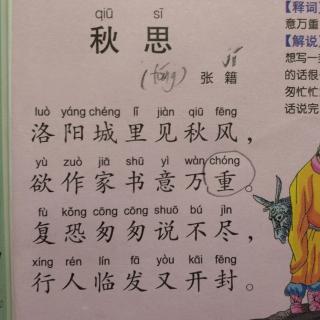 qiū sī
秋思
(táng) 张籍 jí
luò yáng chéng lǐ jiàn qiū fēng
洛阳城里见秋风，
yù zuò jiā shū yì wàn chóng
欲作家书意万重。
fù kǒng cōng cōng shuō bú jìn
复恐匆匆说不尽，
xíng rén lín fā yòu kāi fēng
行人临发又开封。
【释词】
意万重
【解说】
想写一封
的话很
匆忙忙
话说完